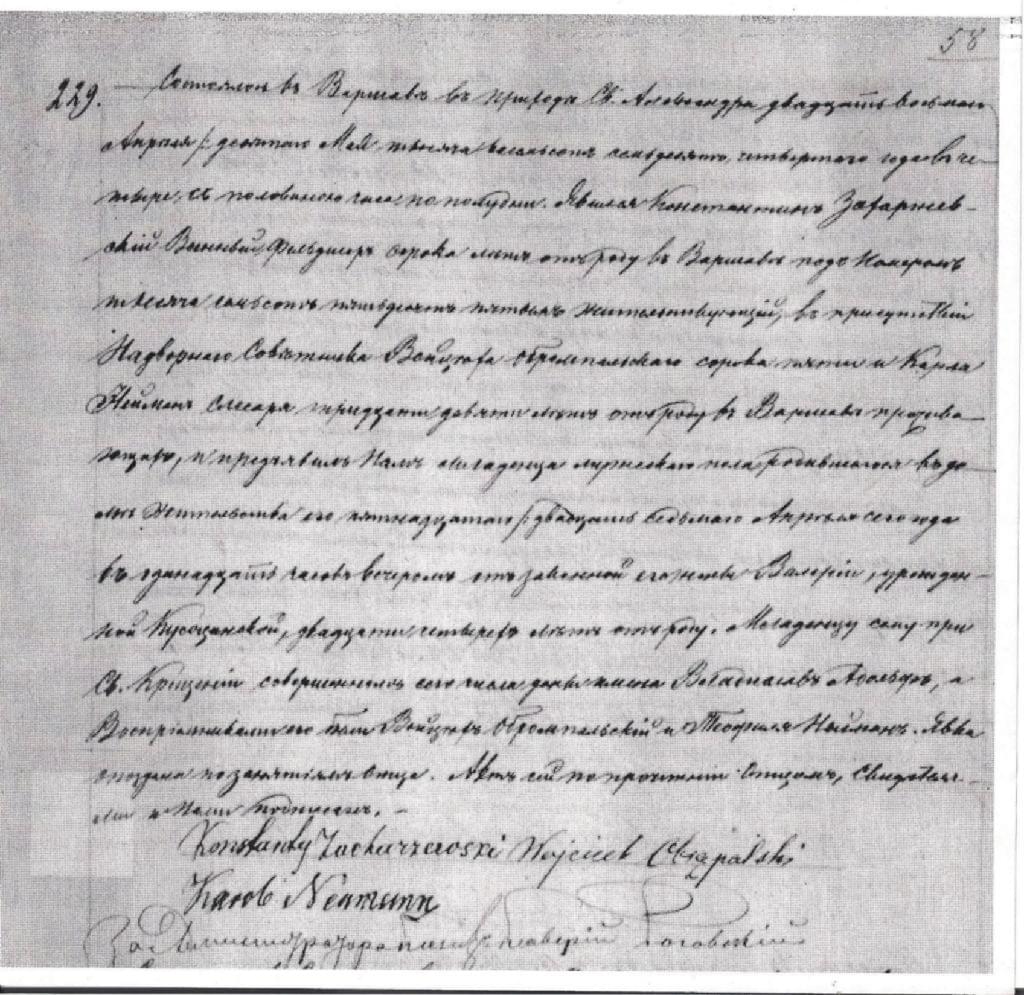 58
229. Состоялось въ Варшавѣ въ приходѣ Св. Александра двадцать восьмаго
Апрѣля /: десятаго Мая тысяча восемьсотъ семьдесятъ четвертаго года въ че-
тыре съ половиною часа по полудни. Явился Константинъ Захаржев-
скій Фельдшеръ сорока лѣтъ отъ роду въ Варшавѣ подъ Номеромъ
тысяча семьсотъ пятьдесятъ пятымъ жительствующій, въ присутствіи
Надворнаго Совѣтника Войцеха сорока пяти и Карла
Нейманъ Слесаря тридцати девяти лѣтъ отъ роду въ Варшавѣ прожива-
ющихъ, и предъявилъ Намъ младенца мужескаго пола родившагося въ до-
мѣ жительства его пятнадцатаго /: двадцать седьмаго Апрѣля сего года
въ одинадцать часовъ вечеромъ отъ законной его жены Валеріи, урожден-
ной двадцати четырехъ лѣтъ отъ роду. Младенцу сему при
Св. Крещеніи совершенномъ сего числа дано имена Владиславъ Адольфъ, а
Воспріемниками его были Войцехъ и Теофиля Нейманъ. Явка
опоздана по занятіямъ Отца. Актъ сей по прочтеніи Отцомъ, Свидѣтеля-
ми и Нами подписанъ. –
Konstanty Zacharzewski Wojciech
Karol Neumann
За Администратора